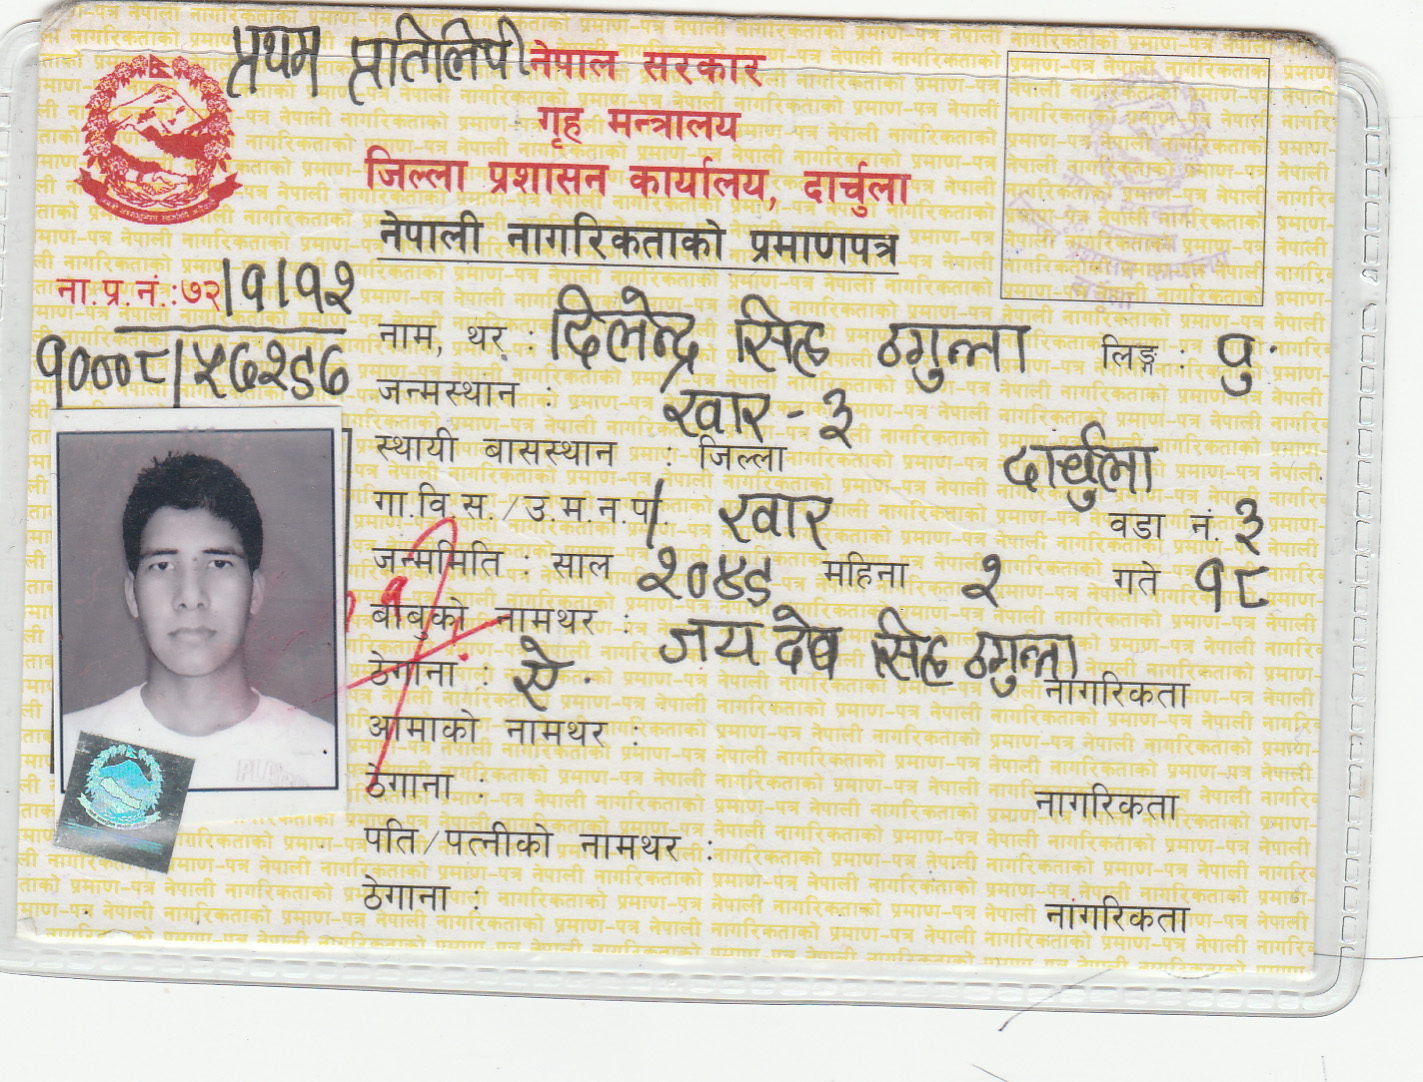 प्रथम प्रतिलिपी
नेपाल सरकार
गृह मन्त्रालय
जिल्ला प्रशासन कार्यालय, दार्चुला
नेपाली नागरिकताको प्रमाणपत्र
ना.प्र.नं.:७२/१/१२
१०००८/५७२९७
नाम, थर : दिलेन्द्र सिंह ठगुन्ना लिङ्ग : पु.
जन्मस्थान : खार-३
स्थायी बासस्थान : जिल्ला दार्चुला
गा.वि.स./उ.म.न.पा. खार वडा नं. ३
जन्ममिति : साल २०४९ महिना २ गते १८
बाबुको नामथर : जय देब सिंह ठगुन्ना
ठेगाना : ऐ. नागरिकता
आमाको नामथर :
ठेगाना : नागरिकता
पति/पत्नीको नामथर :
ठेगाना : नागरिकता